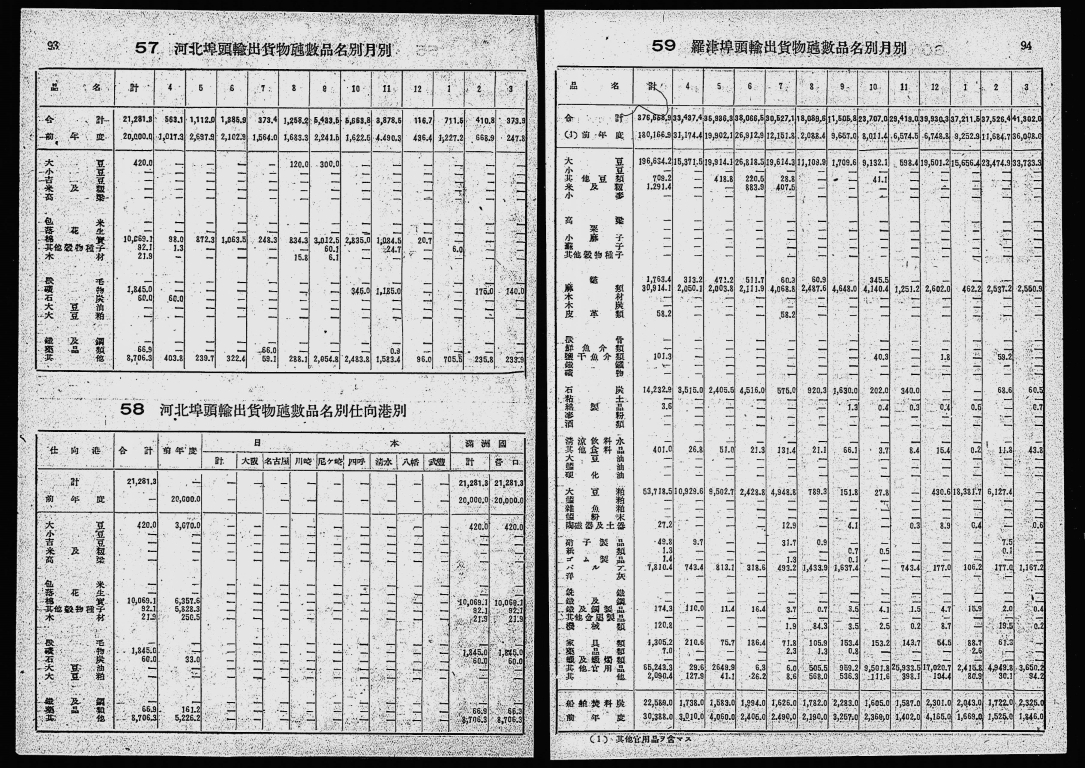 93
57 河北埠頭輸出貨物瓲數品名別月別
品 名 計 4 5 6 7 8 9 10 11 12 1 2 3
合 計 21,281.3 563.1 1,112.0 1,385.9 373.4 1,258.2 5,483.5 5,663.8 3,878.5 116.7 711.5 410.8 373.9
前 年 度 20,000.0 1,017.3 2,697.9 2,102.9 1,564.0 1,683.3 2,241.5 1,622.5 4,490.3 436.4 1,227.2 668.9 247.8
大 豆 420.0 — — — — 120.0 300.0 — — — — — —
小 豆
吉 豆
米 及 類
高 粱
包 米
落 花 生
棉 實 10,069.1 98.0 872.3 1,063.5 248.3 834.3 3,012.5 2,835.0 1,084.5 20.7
其他穀物種子 92.1 1.3 — — — — 60.1 — 24.7 — 6.0 — —
木 材 21.9 — — — — 15.8 6.1 — — — — — —
毛
礦 物 1,845.0 — — — — — — 345.0 1,185.0 — — 175.0 140.0
石 炭 60.0 60.0
大 豆 油
大 豆 粕
鐵 及 鋼 66.9 — — — 66.0 — — — 0.9 — — — —
藥 品 類
其 他 8,706.3 403.8 239.7 322.4 59.1 288.1 2,054.8 2,483.8 1,583.4 96.0 705.5 235.8 233.9
58 河北埠頭輸出貨物瓲數品名別仕向港別
仕 向 港 合 計 前年度 日 本 滿洲國
計 大阪 名古屋 川崎 尼ケ崎 四呼 清水 八幡 武豐 計 營口
計 21,281.3 — — — — — — — — — — 21,281.3 21,281.3
前 年 度 — 20,000.0 — — — — — — — — — 20,000.0 20,000.0
大 豆 420.0 3,670.0 — — — — — — — — — 420.0 420.0
小 豆
吉 豆
米 及 類
高 粱
包 米
落 花 生
棉 實 10,069.1 6,357.6 — — — — — — — — — 10,069.1 10,069.1
其他穀物種子 92.1 5,828.3 — — — — — — — — — 92.1 92.1
木 材 21.9 250.5 — — — — — — — — — 21.9 21.9
毛
礦 物 1,845.0 — — — — — — — — — — 1,845.0 1,845.0
石 炭 60.0 33.0 — — — — — — — — — 60.0 60.0
大 豆 油
大 豆 粕
鐵 及 鋼
藥 品 類 66.9 161.2 — — — — — — — — — 66.9 66.9
其 他 8,706.3 5,226.2 — — — — — — — — — 8,706.3 8,706.3
59 羅津埠頭輸出貨物瓲數品名別月別
94
品 名 計 4 5 6 7 8 9 10 11 12 1 2 3
合 計
(1) 前 年 度 180,166.9 31,174.4 19,902.1 26,912.9 12,151.8 2,088.4 9,657.0 8,011.4 6,574.5 6,748.8 9,252.9 11,684.7 36,008.0
大 豆 196,634.2 15,371.5 19,914.1 26,818.5 19,614.3 11,109.9 1,709.6 9,132.1 598.4 19,501.2 15,656.4 23,474.9 33,733.3
小 豆
其 他 豆 類 709.2 — 418.8 220.5 28.8 — — 41.1 — — — — —
米 及 類 1,291.4 — — 883.9 407.5
小 麥
高 粱
粟
小 麻 子
蘇 子
其他穀物種子
鹽 1,763.4 313.2 471.2 511.7 60.3 60.9 — 345.5
麻 類 30,914.1 2,050.1 2,003.8 2,111.9 4,068.8 2,487.6 4,648.0 4,140.4 1,251.2 2,602.0 462.2 2,537.2 2,550.9
木 材
木 炭
皮 革 類 58.2 — — — 58.2
骨
鮮 魚 介 類
鹽干魚介類 101.3 — — — — — — 40.3 — 1.8 — 59.2 —
鐵 鑛
礦 物
石 炭 14,232.9 3,515.0 2,405.5 4,516.0 575.0 920.3 1,630.0 202.0 340.0 — — 68.6 60.5
粘 土
綿 製 品 3.6 — — — — — 1.3 0.4 0.3 0.4 0.5 — 0.7
麥 粉
酒 類
清涼飲料水
其他食料品 401.0 26.8 51.0 21.3 131.4 21.1 66.1 3.7 8.4 15.4 0.2 11.8 43.8
大 豆 油
油
硬 化 油
大 豆 粕 53,718.5 10,929.6 9,502.7 2,428.8 4,948.8 789.3 151.8 27.8 — 430.6 18,381.7 6,127.4
粕
雜 魚 粕
粉 末
陶磁器及土器 27.2 — — — 12.9 — 4.1 — 0.3 8.9 0.4 — 0.6
硝子製品 49.8 9.7 — — 31.7 0.9 — — — — — 7.5
紙 類 1.3 — — — — — 0.7 0.5 — — — 0.1
ゴム製品 1.4 — — — 1.3 — 0.1
パ ル プ 7,810.4 743.4 813.1 318.6 493.2 1,433.9 1,637.4 — 743.4 177.0 106.2 177.0 1,167.2
洋 灰
銑 鐵
鐵 及 鋼
鐵及鋼製品 174.3 110.0 11.4 16.4 3.7 0.7 3.5 4.1 1.5 4.7 15.9 2.0 0.4
其他金屬製品
機 械 類 120.8 — — — 1.9 84.3 3.5 2.5 0.2 8.7 — 19.5 0.2
家 具 類 1,305.2 210.6 75.7 186.4 71.8 105.9 153.4 153.2 143.7 54.5 88.7 61.3
藥 品 類 7.0 — — — 2.3 1.3 0.8 — — — 2.6
蠟及蠟燭類
其他官用品 65,243.3 29.6 2649.9 6.3 6.0 505.5 959.2 9,501.8 25,933.5 17,020.7 2,415.8 4,949.8 3,650.2
其 他 2,090.4 127.9 41.1 26.2 8.6 568.0 536.3 111.6 398.1 104.4 80.9 30.1 94.2
船舶焚料炭 22,589.0 1,738.0 1,583.0 1,994.0 1,626.0 1,782.0 2,283.0 1,605.0 1,587.0 2,301.0 2,043.0 1,722.0 2,325.0
前 年 度 30,388.0 3,010.0 4,060.0 2,405.0 2,490.0 2,190.0 3,257.0 2,369.0 1,402.0 4,165.0 1,669.0 1,525.0 1,846.0
(1) 其他官用品ヲ含マス